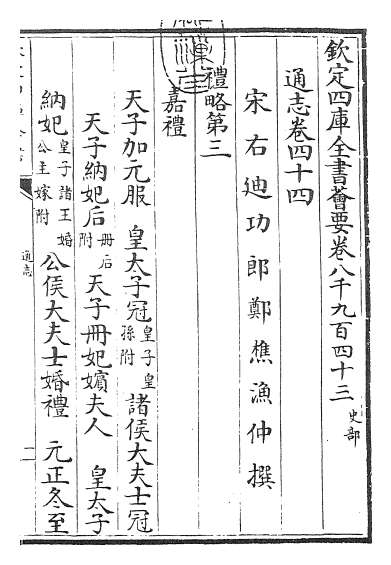 欽定四庫全書薈要卷八千九百四十三 史部
通志卷四十四
宋右迪功郎鄭樵漁仲撰
禮略第三
嘉禮
天子加元服 皇太子冠 皇子皇孫附 諸侯大夫士冠
天子納妃后 冊后附 天子冊妃嬪夫人 皇太子
納妃 皇子諸王婚公主嫁附 公侯大夫士婚禮 元正冬至
通志
一